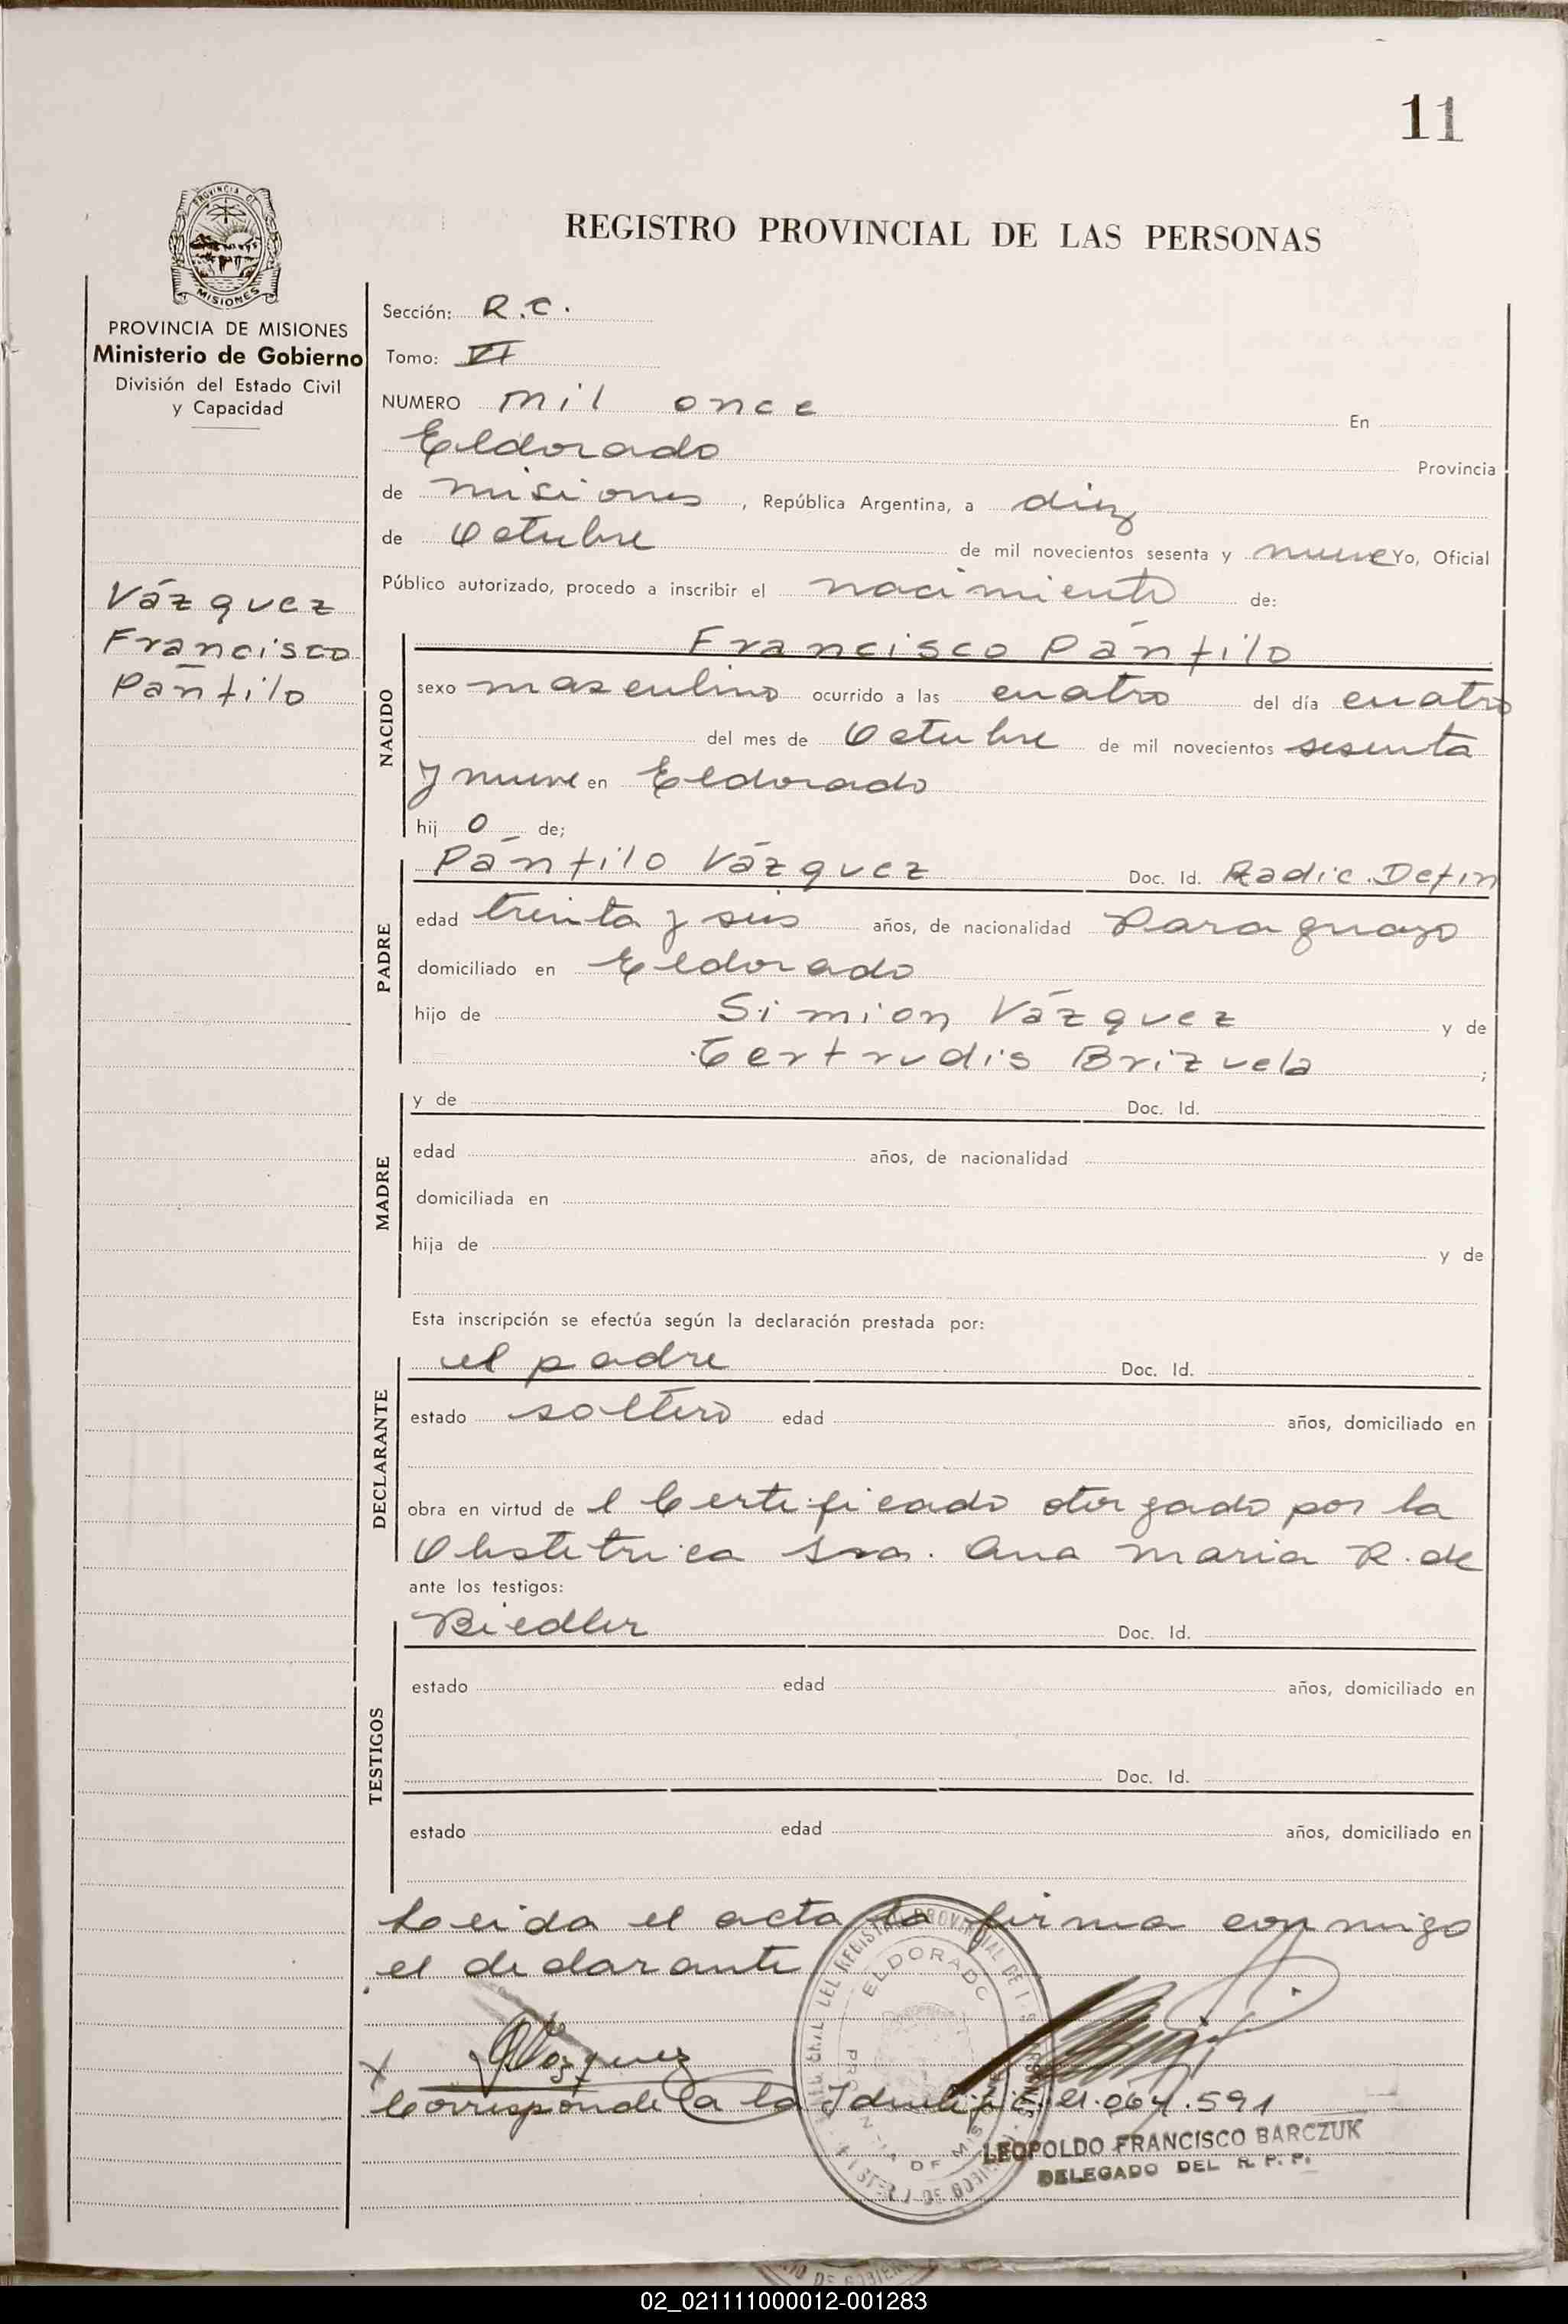 11
REGISTRO PROVINCIAL DE LAS PERSONAS
PROVINCIA DE MISIONES
Ministerio de Gobierno
División del Estado Civil
y Capacidad
Vázquez
Francisco
Pánfilo
Sección: R.C.
Tomo: VI
NUMERO mil once En
Eldorado Provincia
de misiones, República Argentina, a diez
de Octubre de mil novecientos sesenta y nueve Yo, Oficial
Público autorizado, procedo a inscribir el nacimiento de:
Francisco Pánfilo
NACIDO
sexo masculino ocurrido a las cuatro del día cuatro
del mes de Octubre de mil novecientos sesenta
y nueve en Eldorado
hij o de;
PADRE
Pánfilo Vázquez Doc. Id. Radic. Defin
edad treinta y seis años, de nacionalidad Paraguayo
domiciliado en Eldorado
hijo de Simion Vázquez y de
Gertrudis Brizuela;
MADRE
y de Doc. Id.
edad años, de nacionalidad
domiciliada en
hija de y de
Esta inscripción se efectúa según la declaración prestada por:
DECLARANTE
el padre Doc. Id.
estado soltero edad años, domiciliado en
obra en virtud de l Certificado otorgado por la
Obstetrica Sra. Ana Maria R. de
ante los testigos:
TESTIGOS
Biedler Doc. Id.
estado edad años, domiciliado en
Doc. Id.
estado edad años, domiciliado en
Leida el acta la firma conmigo
el declarante
Vázquez
Corresponde a la Identific. 21.064.591
ELDORADO
LEOPOLDO FRANCISCO BARCZUK
DELEGADO DEL R. P. P.
02_021111000012-001283